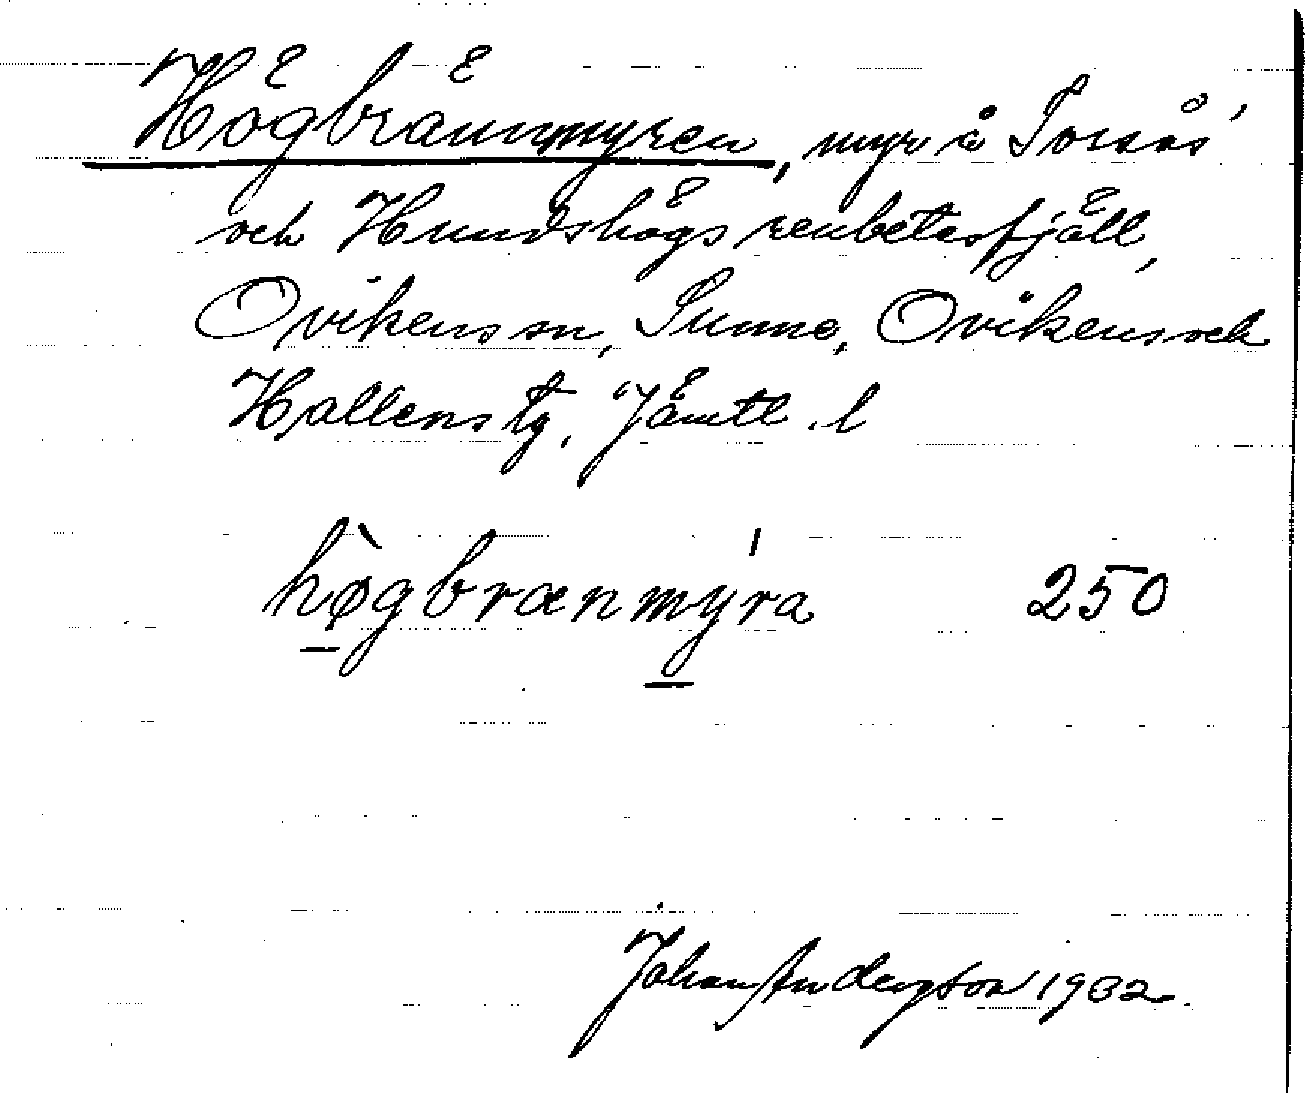 Högbrännmyren, myr å Torsås'
och Hundshögs renbetesfjäll,
Ovikens sn, Sunne, Ovikens och
Hallens tg, Jämtl. l
høgbrænmyra 250
Johan Anderson 1932.